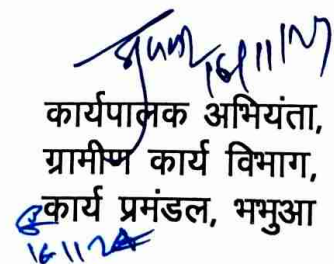 16/11/24
कार्यपालक अभियंता,
ग्रामीण कार्य विभाग,
कार्य प्रमंडल, भभुआ
16.11.24